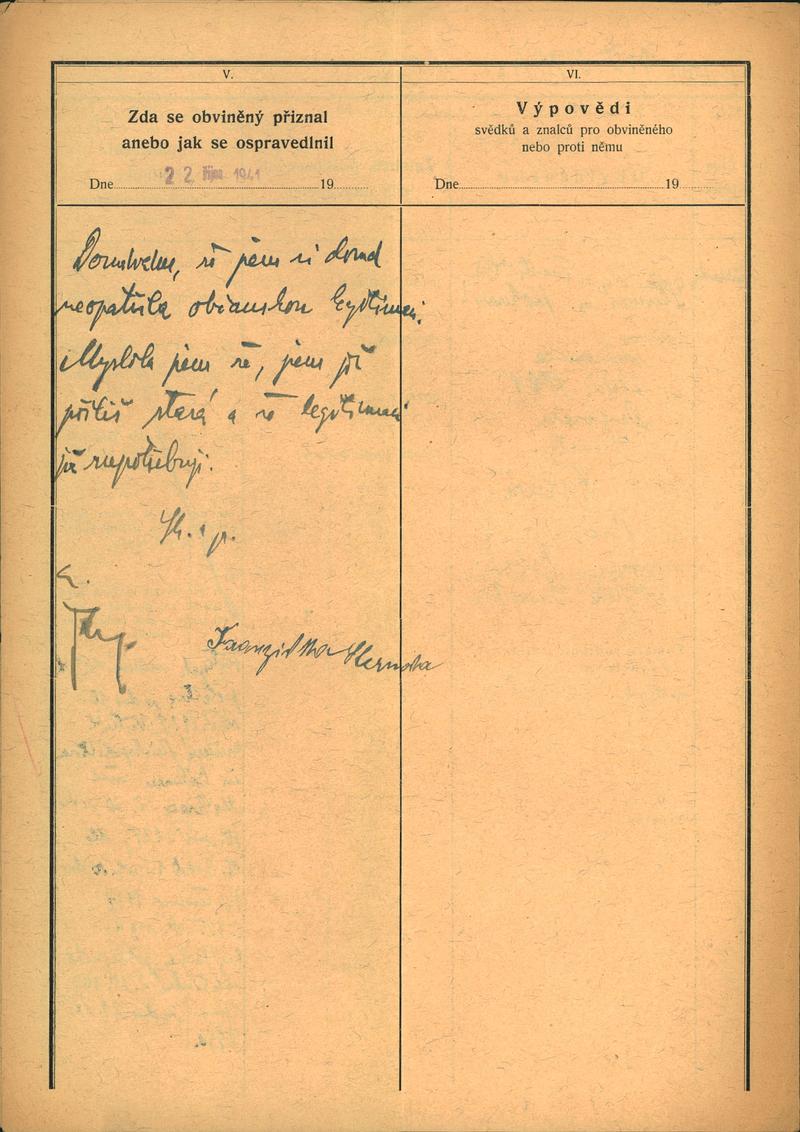 V.
Zda se obviněný přiznal
anebo jak se ospravedlnil
Dne 22. října 1941 19
VI.
Výpovědi
svědků a znalců pro obviněného
nebo proti němu
Dne 19
že jsem si dosud
neopatřila občanskou legitimaci.
Myslila jsem že, jsem již
příliš stará a že legitimaci
již nepotřebuji.
Franziska Sternova